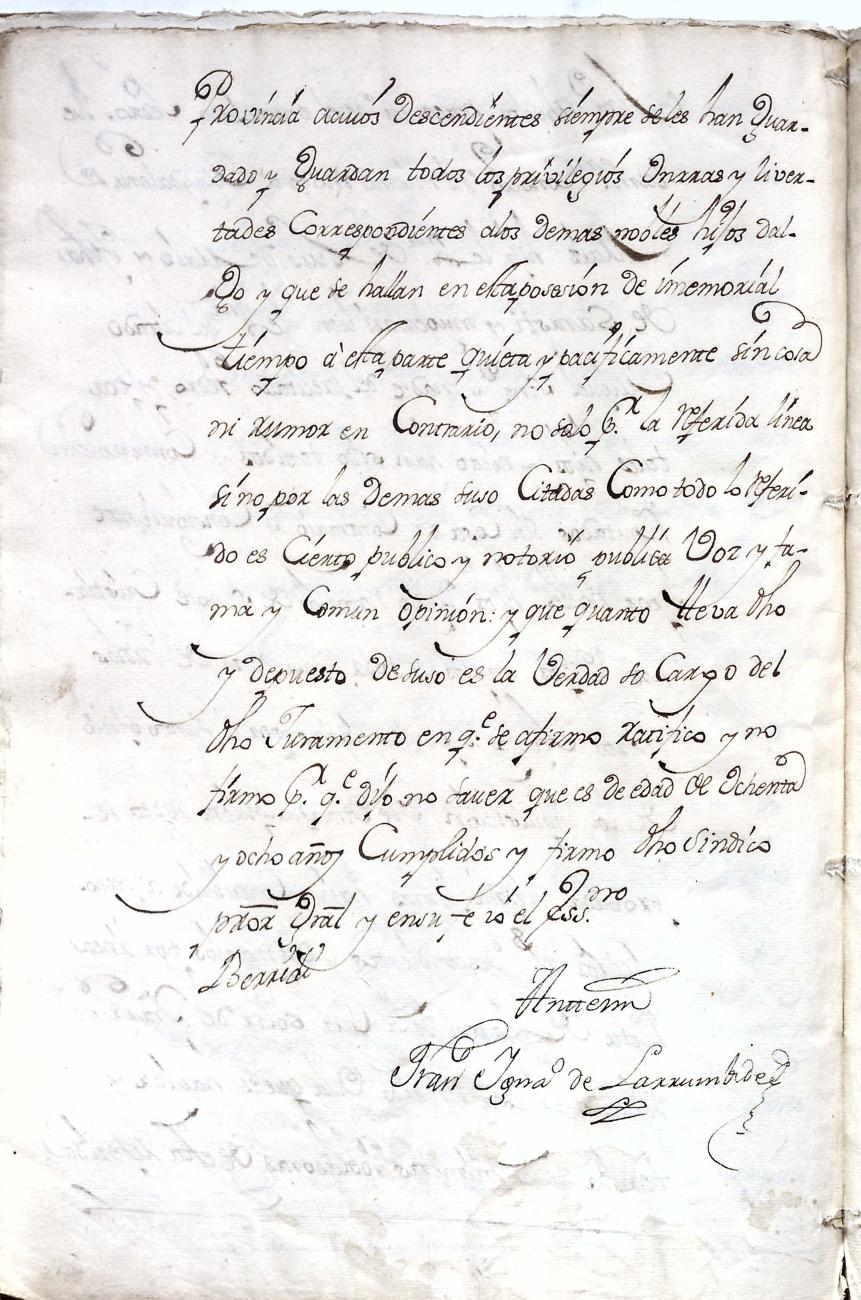 Provincia acuios Descendientes siempre seles han Guar-
dado y Guardan todos los privilegios onrras y liver-
tades Correspondientes alos demas nobles hijos dal-
go y que se hallan en esta posesion de imemorial
tiempo a esta parte quieta y pacificamente sin cosa
ni rumor en Contrario, no solo p.r la referida linea
sino por las demas suso Citadas Como todo lo referi-
do es Cierto publico y notorio publica Voz y fa-
ma y Comun opinion: y que quanto lleva dho
y depuesto de suso es la Verdad so Cargo del
dho Juramento en q.e se afirmo ratifico y no
firmo p.r q.e dijo no saver que es de edad de ochenta
y ocho años Cumplidos y firmo dho Sindico
pror Gral y en su fe io el Ess.no
Berrial
Anttemi
Fran Igna.o de Larrumbide